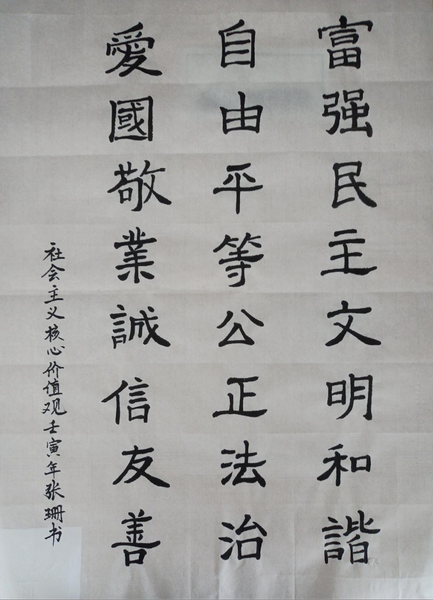 富强民主文明和諧
自由平等公正法治
愛國敬業誠信友善
社会主义核心价值观壬寅年张珊书